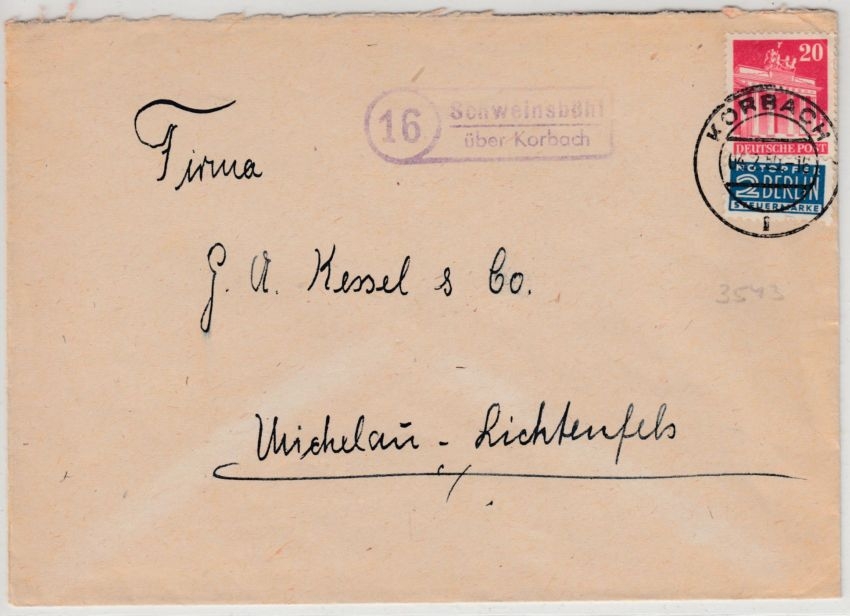 20
DEUTSCHE POST
NOTOPFER
2 BERLIN
STEUERMARKE
KORBACH
16
Schweinsbühl
über Korbach
Firma
G. A. Kessel & Co.
3543
Michelau - Lichtenfels